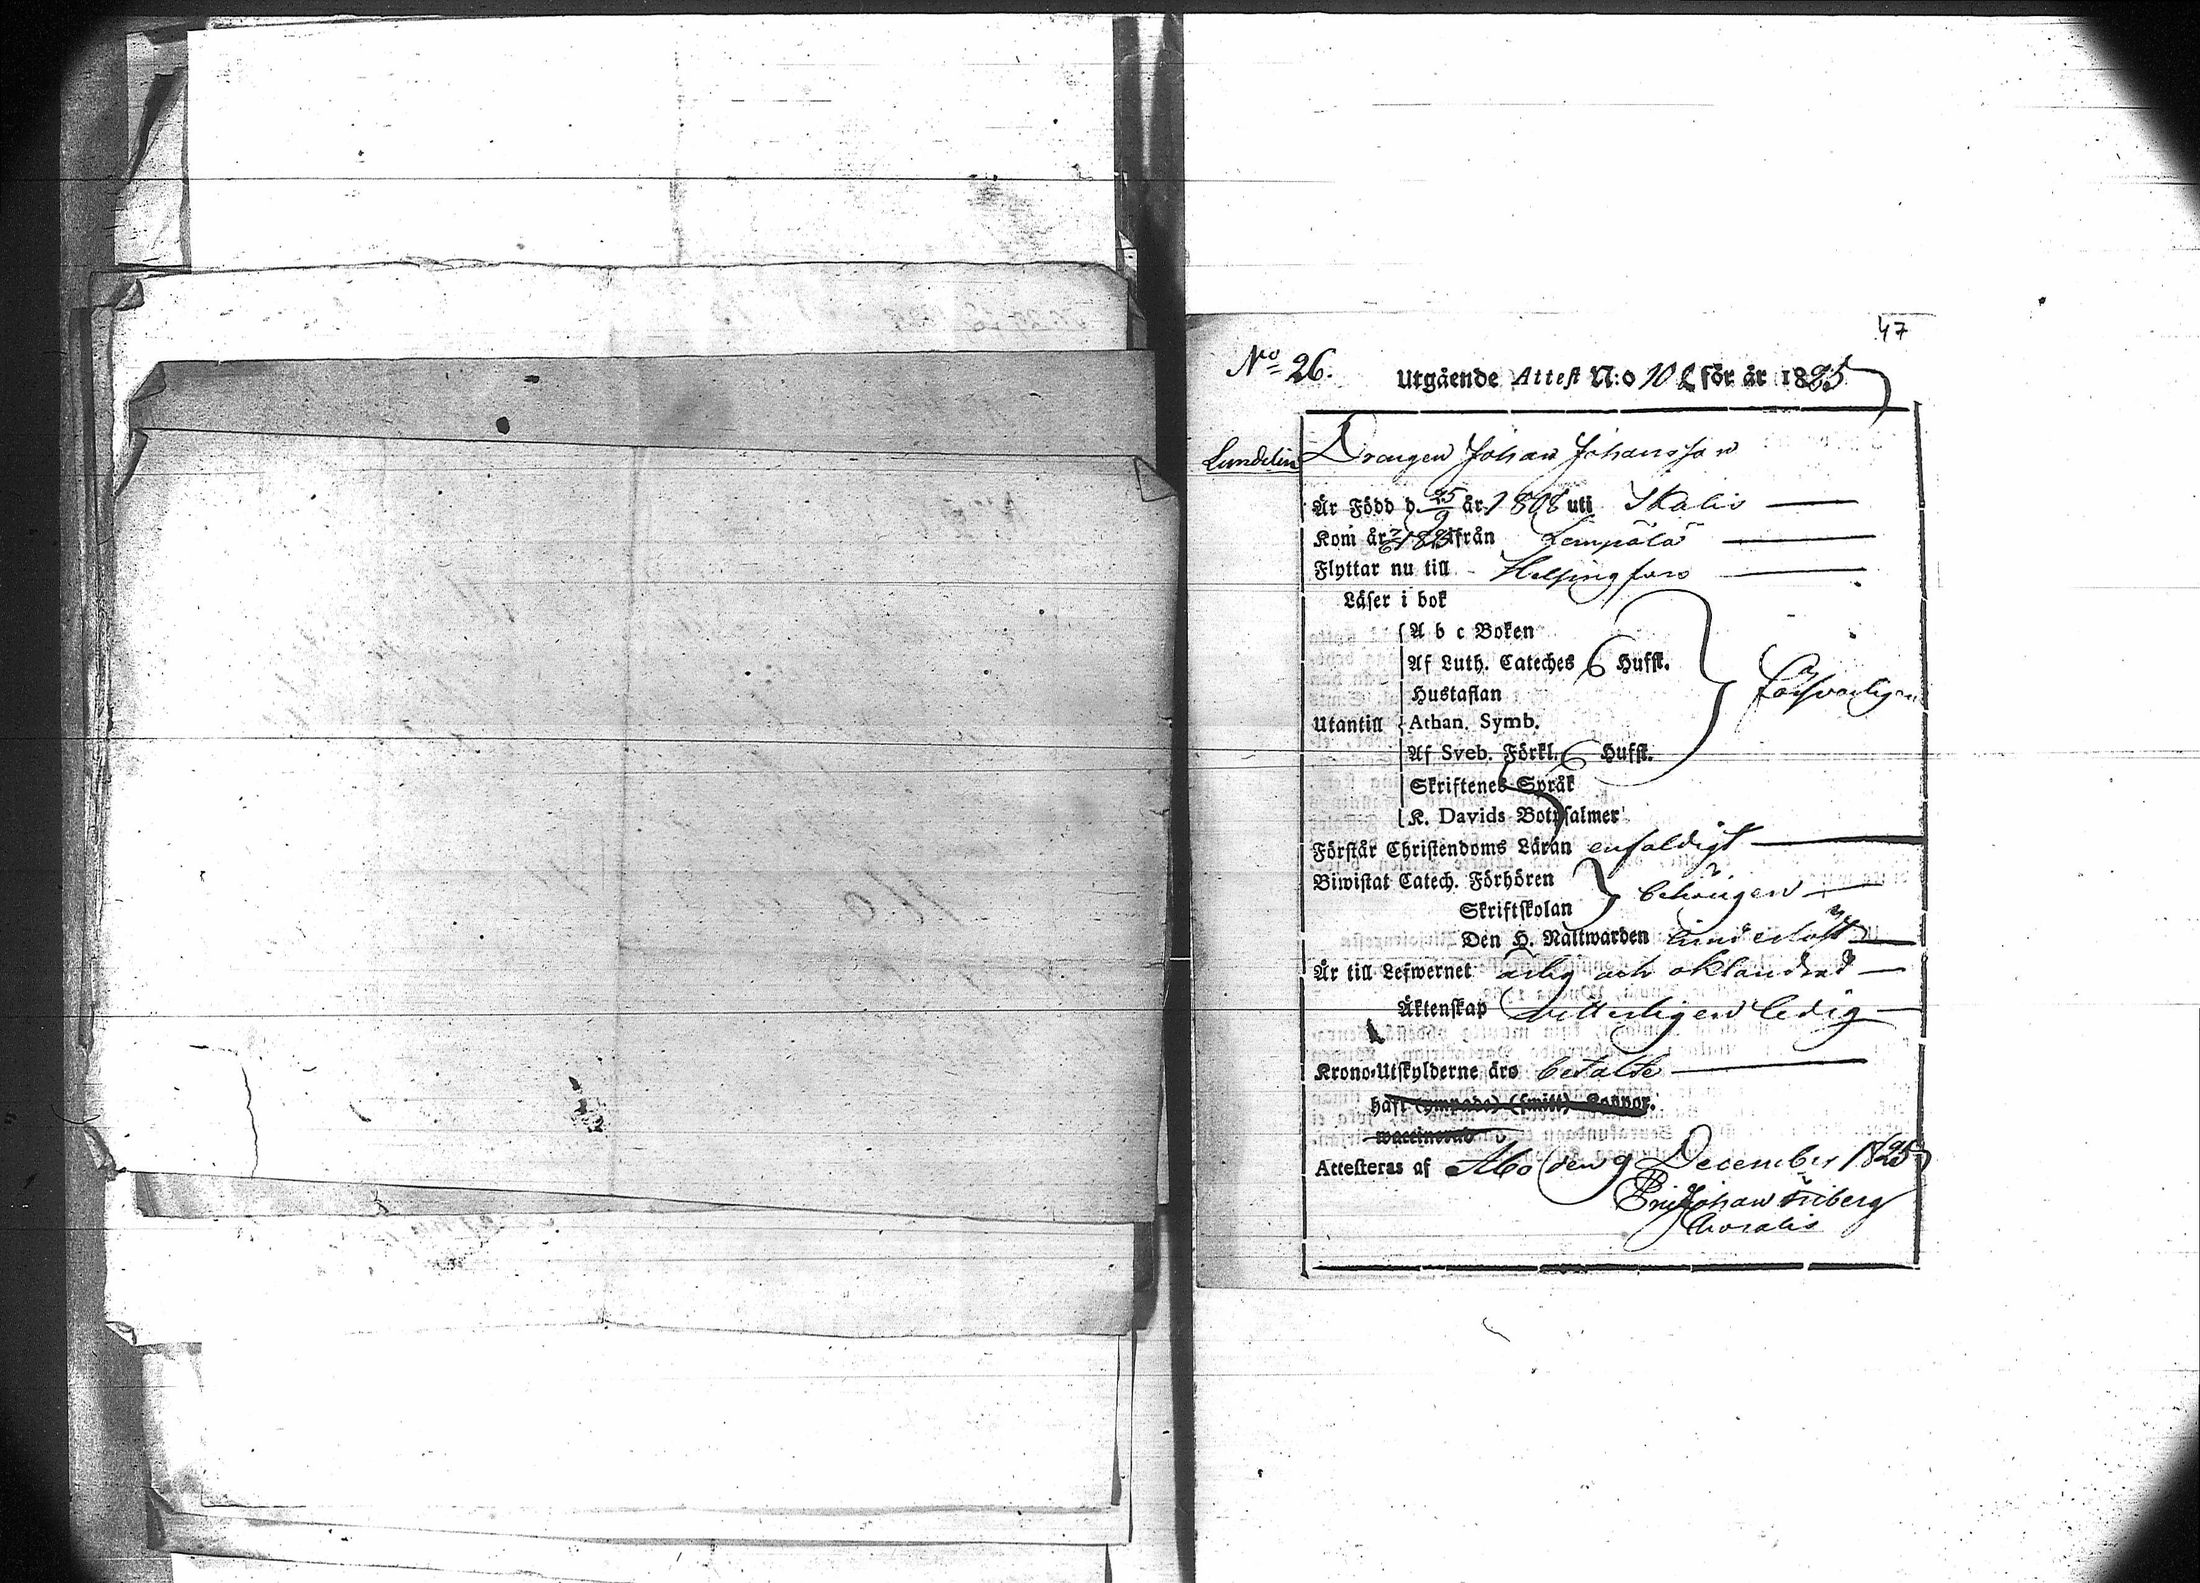 47
No 26.
Utgående Attest N:o 10 för år 1825
Lundelin
Drängen Johan Johansson
Är Född d. 25/9 år 1808 uti Ikalis
Kom år från Lempälä
Flyttar nu till Helsingfors
Läser i bok
A b c Boken
Af Luth. Cateches 6 Hufst.
Hustaflan
försvarligen
Utantill Athan. Symb.
Af Sveb. Förkl. 6 Hufst.
Skriftenes Språk
K. Davids Botpsalmer
Förstår Christendoms Läran enfaldigt
Biwistat Catech. Förhören
behörigen
Skriftskolan
Den H. Nattwarden
Är till Lefwernet ärlig och oklandrad
Äktenskap vitterligen ledig
Krono-Utskylderne äro betalde
haft (ympade) (smitt) Koppor.
waccinerad
Attesteras af Åbo den 9 December 1825
Johan